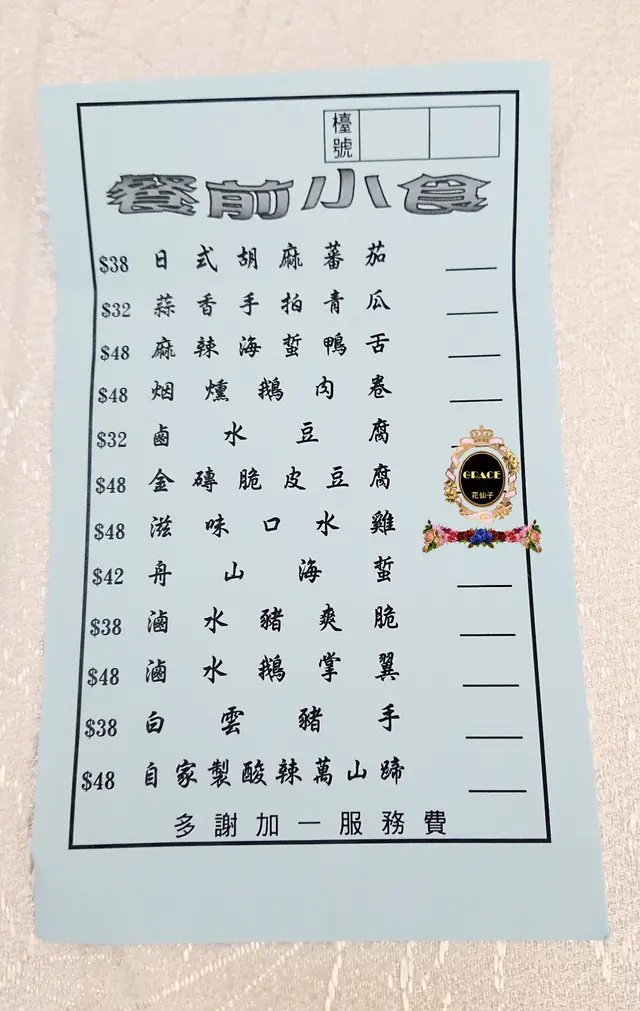 檯號
餐前小食
$38 日式胡麻蕃茄
$32 蒜香手拍青瓜
$48 麻辣海蜇鴨舌
$48 烟燻鵝肉卷
$32 鹵水豆腐
$48 金磚脆皮豆腐
GRACE
花仙子
$48 滋味口水雞
$42 舟山海蜇
$38 滷水豬爽脆
$48 滷水鵝掌翼
$38 白雲豬手
$48 自家製酸辣萬山蹄
多謝加一服務費